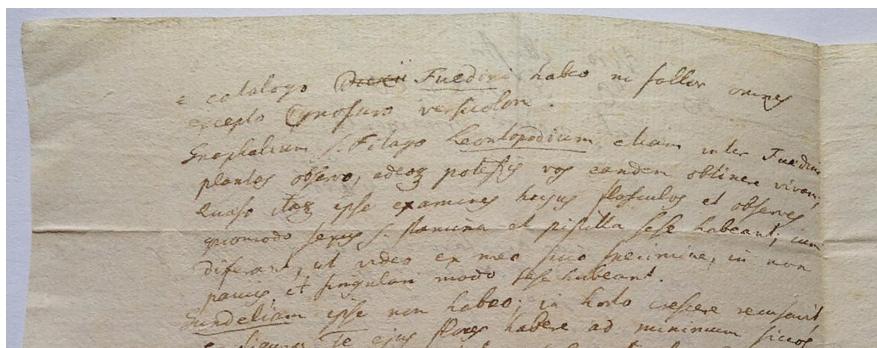 e catalogo Tuedini habeo ni fallor omnes
excepto Cynosuro versicolori.
Gnaphalium s. Filago Leontopodium etiam inter Tuedin
plantas observo, adeoq potestis vos eandem obtinere vivam,
Quæso itaq ipse examines hujus flosculos et observes
quomodo sexus s. stamina et pistilla sese habeant, cum
diferant, ut video ex meo sicco specimine, in non
paucis et singulari modo sese habeant.
Gundeliam ipse non habeo, in horto crescere recusavit,
te ejus flores habere ad minimum siccos